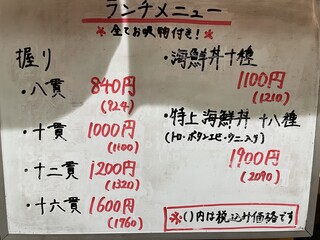 ランチメニュー
※全てお吸物付き!※
握り
・八貫 840円
(924)
・十貫 1000円
(1100)
・十二貫 1200円
(1320)
・十六貫 1600円
(1760)
・海鮮丼 十種
1100円
(1210)
・特上海鮮丼 十八種
(トロ・ボタンエビ・ウニ入り)
1900円
(2090)
※( )内は税込み価格です